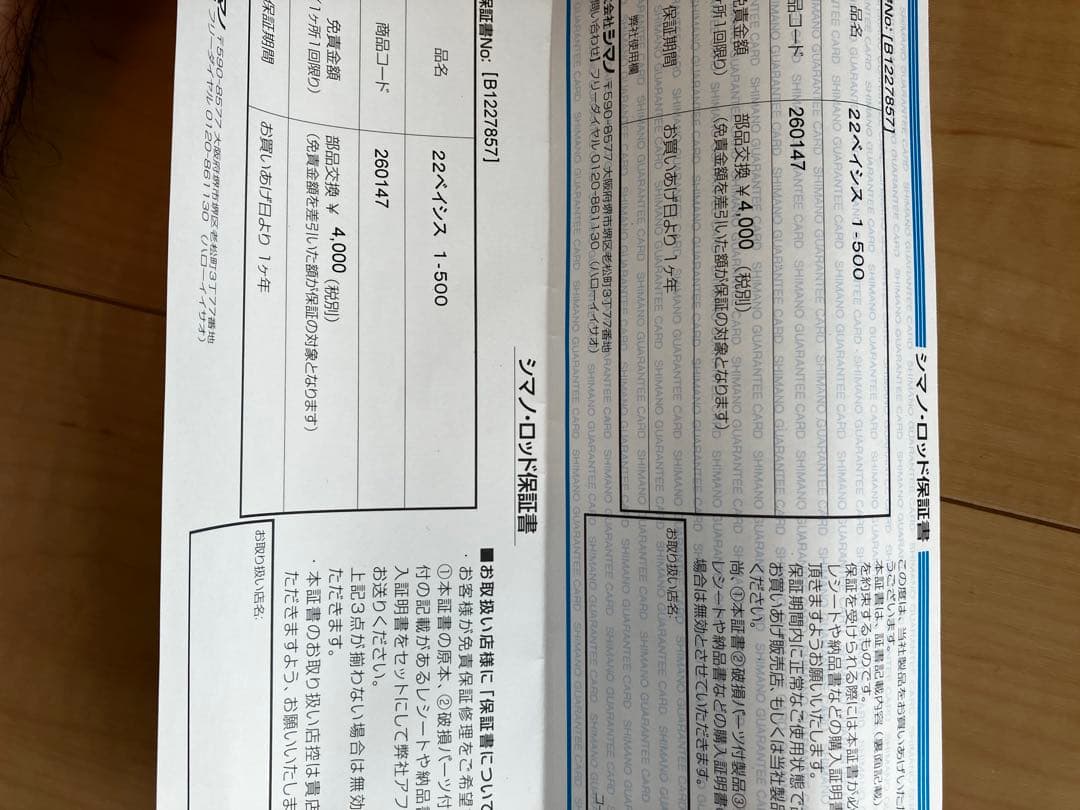 シマノ・ロッド保証書
No: [B1227857]
品名
22ベイシス 1-500
品コード
260147
免責金額
ヶ所1回限り)
部品交換 ¥ 4,000 (税別)
(免責金額を差引いた額が保証の対象となります)
保証期間
お買いあげ日より 1ヶ年
弊社使用欄
会社シマノ 〒590-8577 大阪府堺市堺区老松町3丁77番地
問い合わせ】フリーダイヤル 0120-861130 (ハローイイサオ)
この度は、当社製品をお買いあげいた
うございます。
本証書は、証書記載内容(裏面記載
を約束するものです。
保証を受けられる際には本証書が必
レシートや納品書などの購入証明書
頂きますようお願いいたします。
保証期間内に正常なご使用状態で
お買いあげ販売店、もしくは当社製品
ください。
尚、①本証書②破損パーツ付製品③
レシートや納品書などの購入証明書
場合は無効とさせていただきます。
お取り扱い店名
SHIMANO GUARANTEE CARD
シマノ・ロッド保証書
保証書No: [B1227857]
品名
22ベイシス 1-500
商品コード
260147
免責金額
(1ヶ所1回限り)
部品交換 ¥ 4,000 (税別)
(免責金額を差引いた額が保証の対象となります)
保証期間
お買いあげ日より 1ヶ年
マノ 〒590-8577 大阪府堺市堺区老松町3丁77番地
フリーダイヤル 0120-861130 (ハローイイサオ)
■お取扱い店様に「保証書について
・お客様が免責保証修理をご希望
①本証書の原本、②破損パーツ付
付の記載があるレシートや納品書
入証明書をセットにして弊社アフ
お送りください。
上記3点が揃わない場合は無効
ただきます。
・本証書のお取り扱い店控は貴店
ただきますよう、お願いいたしま
お取り扱い店名: